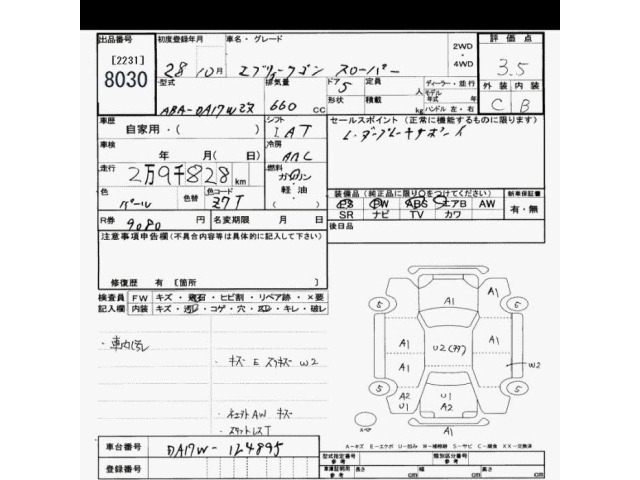 出品番号 初度登録年月 車名・グレード 2WD・4WD 評価点
[2231]
8030
28年10月 エブリィワゴン 3.5
型式 排気量 ドア 5 定員 人 ディーラー・並行 外装 内装
ABA-DA17W 660 cc 形状 積載 kg モデル年式 年式 ハンドル 左・右 C B
車歴 自家用・( ) シフト IAT セールスポイント (正常に機能するものに限ります)
車検 年 月( 日) 冷房 AAC
走行 2万9千828km 燃料 ガソリン・軽油・( )
色 パール 色替 色コード Z7T 装備品 (純正品に限り○をつけてください) 新車保証書
PS PW ABS エアB AW 有・無
R券 9080 円 名変期限 月 日 SR ナビ TV カワ
注意事項申告欄(不具合内容等は具体的に記入して下さい) 後日品
修復歴 有 〔箇所 〕
検査員 FW キズ・飛石・ヒビ割・リペア跡・×要
記入欄 内装 キズ・・コゲ・穴・・キレ・破レ
キズ E W2
AW キズ
A1
5 A1 A1 5
A1 A1
U2 W2
A1
5 A2 U1 A2 U1 A1 5
スペア A1
A-キズ E-エクボ U-凹み W-補修跡 S-サビ C-腐食 XX-交換済
車台番号 DA17W-124895 型式指定番号 参考 類別区分番号 参考
登録番号 車庫証明用 参考 長さ cm 幅 cm 高さ cm